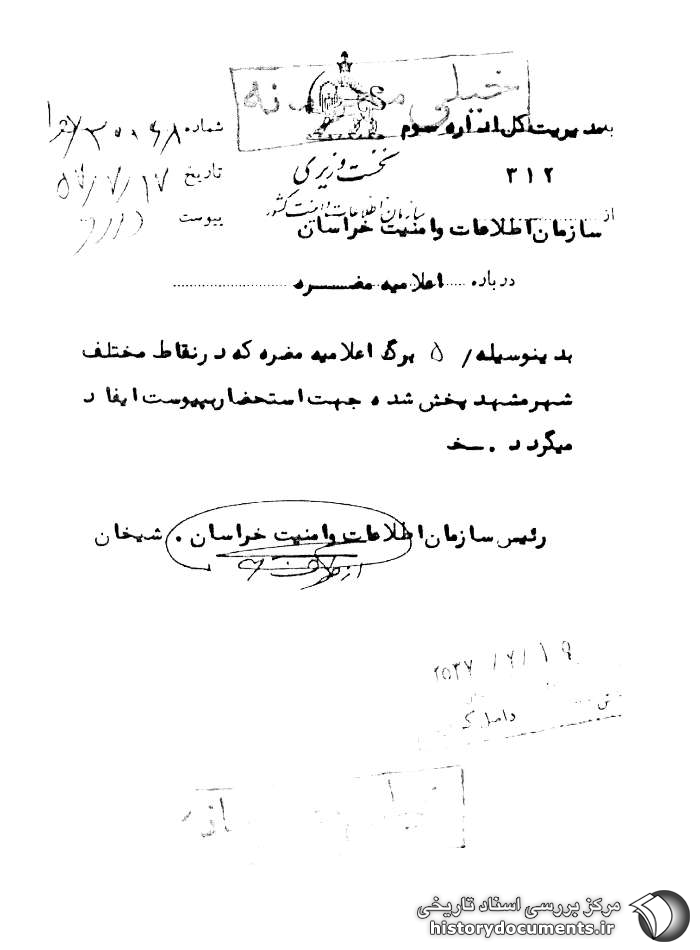 خیلی محرمانه
به مدیریت کل اداره سوم
شماره
نخست وزیری
۳۱۲
تاریخ ۵۷/۷/۱۷
سازمان اطلاعات و امنیت کشور
پیوست دارد
از سازمان اطلاعات وامنیت خراسان
درباره اعلامیه مضره
بدینوسیله / ۵ برگ اعلامیه مضره که درنقاط مختلف
شهر مشهد پخش شده جهت استحضار بپیوست ایفاد
میگردد . خ
رئیس سازمان اطلاعات وامنیت خراسان . شیخان
از طرف
۲۵۳۷ / ۷ / ۱۹
مرکز بررسی اسناد تاریخی
historydocuments.ir